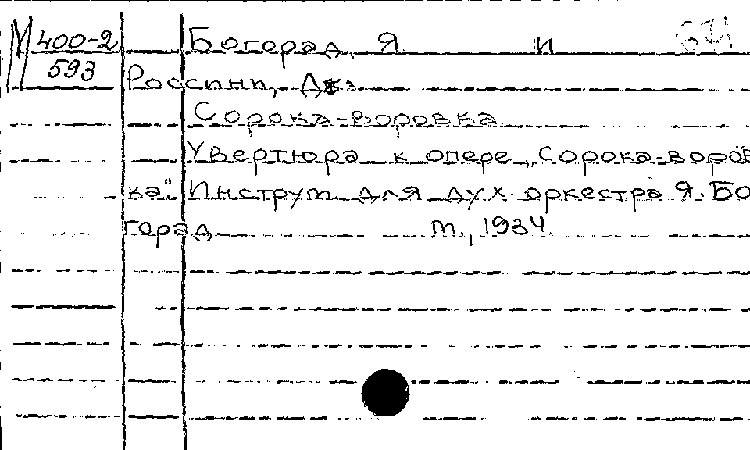 М 400-2 Богорад, Я И
593 Россини, Дж.
Сорока-воровка
Увертюра к опере „Сорока-воров
ка" Инструм. для дух. оркестра Я. Бо
горад М., 1934